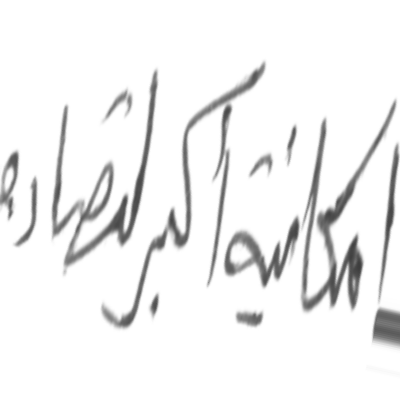 امكانية أكبر لتصادر